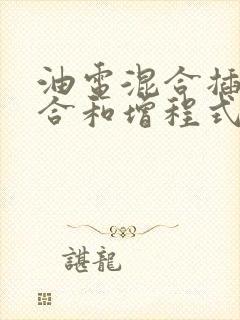 油电混合插
合和增程式
諶龍